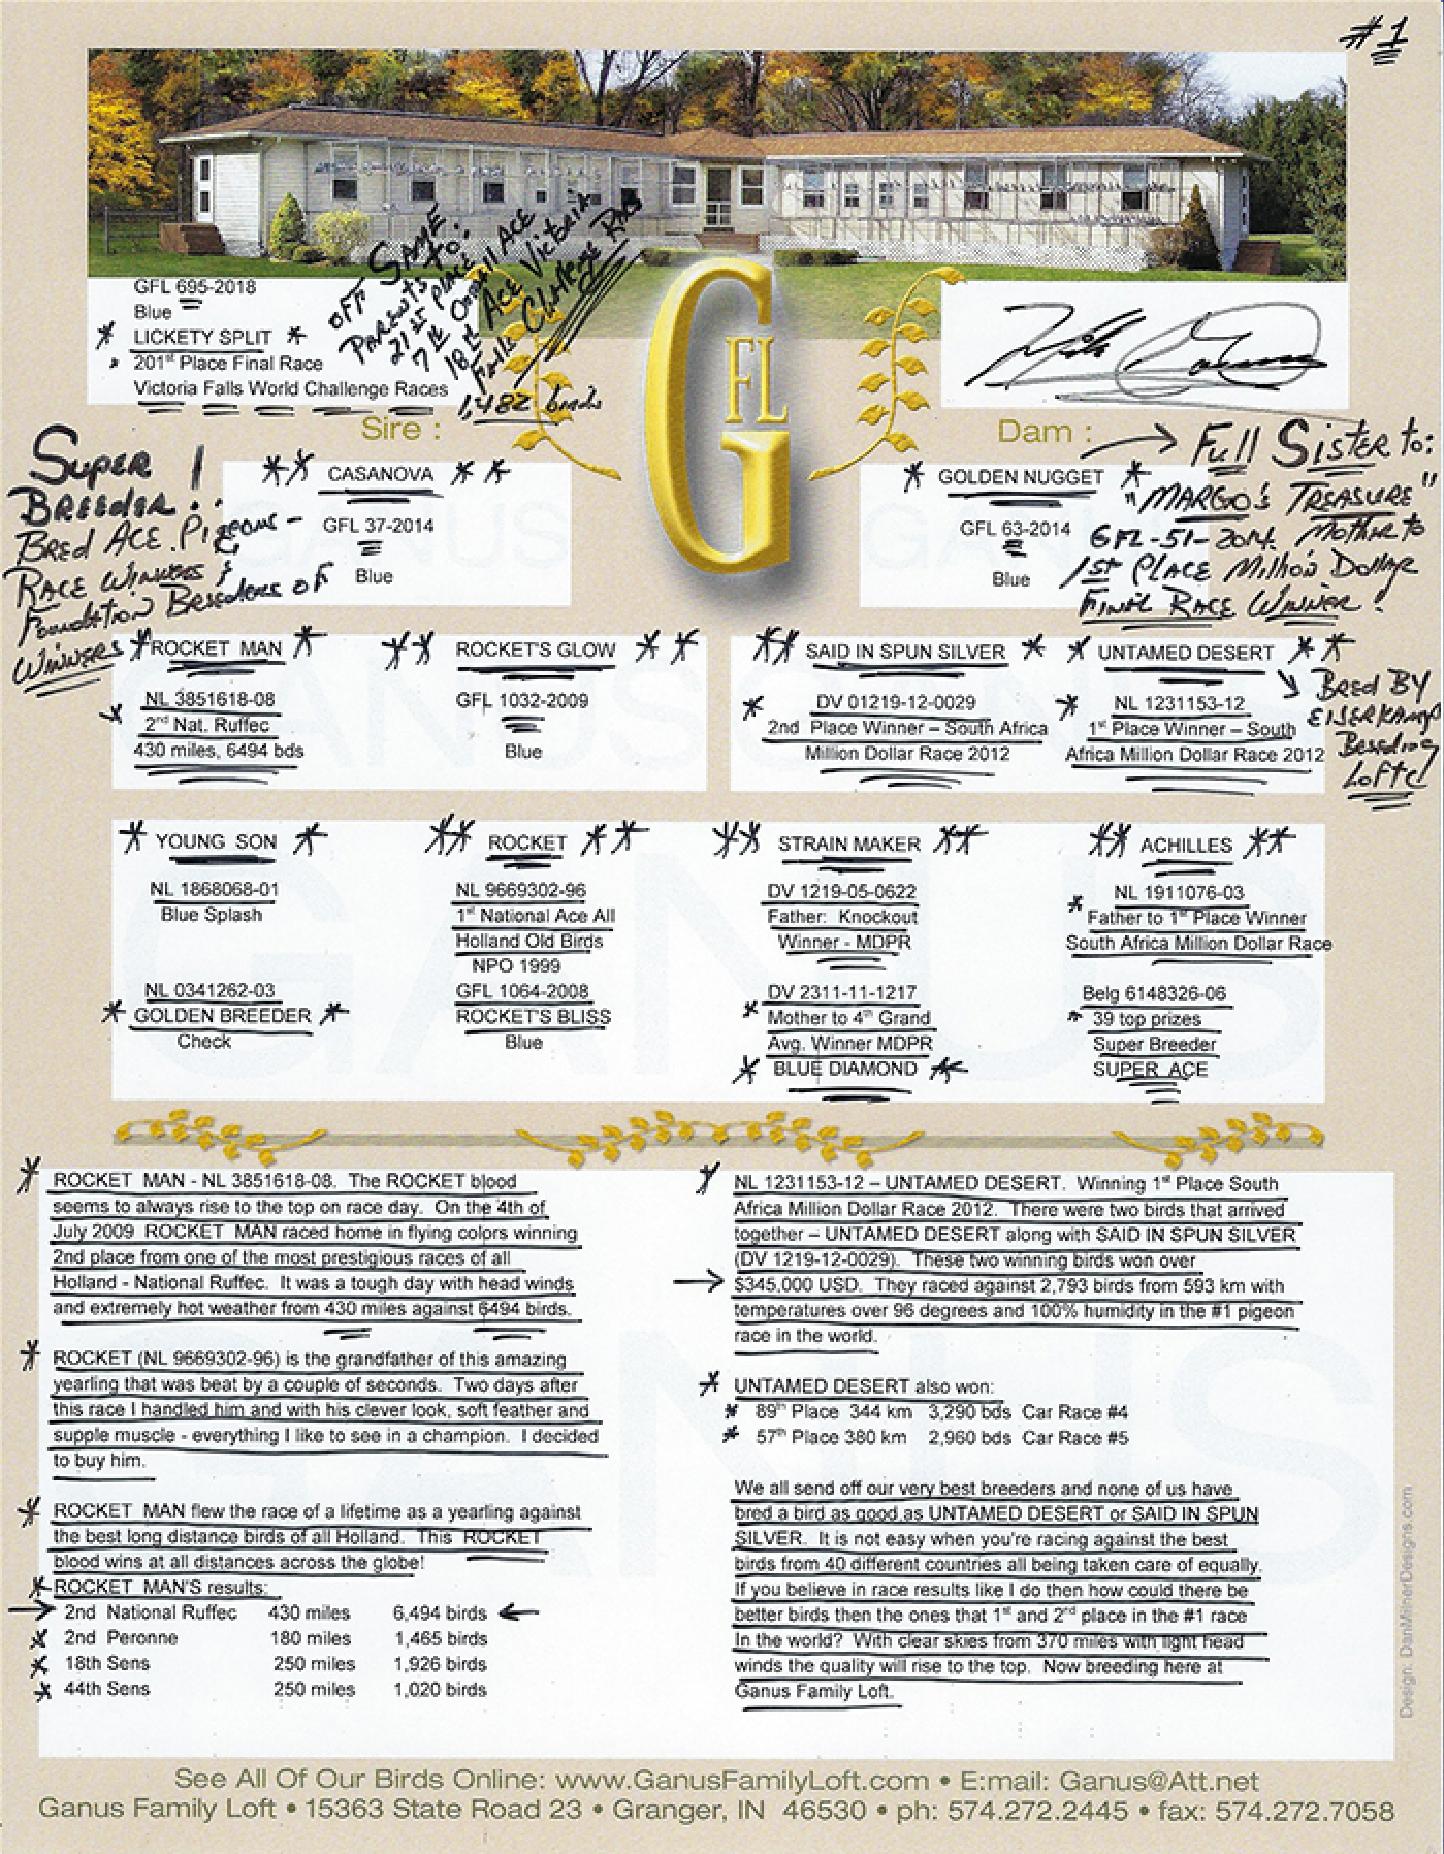 #1
GFL 695-2018
Blue
* LICKETY SPLIT *
* 201st Place Final Race
Victoria Falls World Challenge Races
OFF SAME
PARENTS TO:
21st PLACE
7th Overall ACE
18th ACE Victoria
Falls Challenge Race
1,482 birds
GFL
Sire :
Dam :
Super !
BREEDER!!
BRED ACE PIGEONS -
RACE WINNERS &
Foundation Breeders OF
WINNERS
** CASANOVA **
GFL 37-2014
Blue
* GOLDEN NUGGET *
GFL 63-2014
Blue
→ Full Sister to:
"MARGO'S TREASURE"
GFL-51-2014 Mother to
1st PLACE Million Dollar
FINAL RACE WINNER!
*ROCKET MAN *
NL 3851618-08
* 2nd Nat. Ruffec
430 miles, 6494 bds
** ROCKET'S GLOW **
GFL 1032-2009
Blue
** SAID IN SPUN SILVER *
DV 01219-12-0029
* 2nd Place Winner – South Africa
Million Dollar Race 2012
* UNTAMED DESERT **
NL 1231153-12
* 1st Place Winner – South
Africa Million Dollar Race 2012
Bred BY
EIJERKAMP
Breeding
Loft
* YOUNG SON *
NL 1868068-01
Blue Splash
NL 0341262-03
* GOLDEN BREEDER *
Check
** ROCKET **
NL 9669302-96
1st National Ace All
Holland Old Birds
NPO 1999
GFL 1064-2008
ROCKET'S BLISS
Blue
** STRAIN MAKER **
DV 1219-05-0622
Father: Knockout
Winner - MDPR
DV 2311-11-1217
* Mother to 4th Grand
Avg. Winner MDPR
* BLUE DIAMOND *
** ACHILLES **
NL 1911076-03
* Father to 1st Place Winner
South Africa Million Dollar Race
Belg 6148326-06
* 39 top prizes
Super Breeder
SUPER ACE
* ROCKET MAN - NL 3851618-08. The ROCKET blood
seems to always rise to the top on race day. On the 4th of
July 2009 ROCKET MAN raced home in flying colors winning
2nd place from one of the most prestigious races of all
Holland - National Ruffec. It was a tough day with head winds
and extremely hot weather from 430 miles against 6494 birds.
* ROCKET (NL 9669302-96) is the grandfather of this amazing
yearling that was beat by a couple of seconds. Two days after
this race I handled him and with his clever look, soft feather and
supple muscle - everything I like to see in a champion. I decided
to buy him.
* ROCKET MAN flew the race of a lifetime as a yearling against
the best long distance birds of all Holland. This ROCKET
blood wins at all distances across the globe!
* ROCKET MAN'S results:
→ 2nd National Ruffec 430 miles 6,494 birds ←
* 2nd Peronne 180 miles 1,465 birds
* 18th Sens 250 miles 1,926 birds
* 44th Sens 250 miles 1,020 birds
* NL 1231153-12 – UNTAMED DESERT. Winning 1st Place South
Africa Million Dollar Race 2012. There were two birds that arrived
together – UNTAMED DESERT along with SAID IN SPUN SILVER
(DV 1219-12-0029). These two winning birds won over
→ $345,000 USD. They raced against 2,793 birds from 593 km with
temperatures over 96 degrees and 100% humidity in the #1 pigeon
race in the world.
* UNTAMED DESERT also won:
* 89th Place 344 km 3,290 bds Car Race #4
* 57th Place 380 km 2,960 bds Car Race #5
We all send off our very best breeders and none of us have
bred a bird as good as UNTAMED DESERT or SAID IN SPUN
SILVER. It is not easy when you're racing against the best
birds from 40 different countries all being taken care of equally.
If you believe in race results like I do then how could there be
better birds then the ones that 1st and 2nd place in the #1 race
In the world? With clear skies from 370 miles with light head
winds the quality will rise to the top. Now breeding here at
Ganus Family Loft.
Design: DanMilnerDesigns.com
See All Of Our Birds Online: www.GanusFamilyLoft.com • E:mail: Ganus@Att.net
Ganus Family Loft • 15363 State Road 23 • Granger, IN 46530 • ph: 574.272.2445 • fax: 574.272.7058